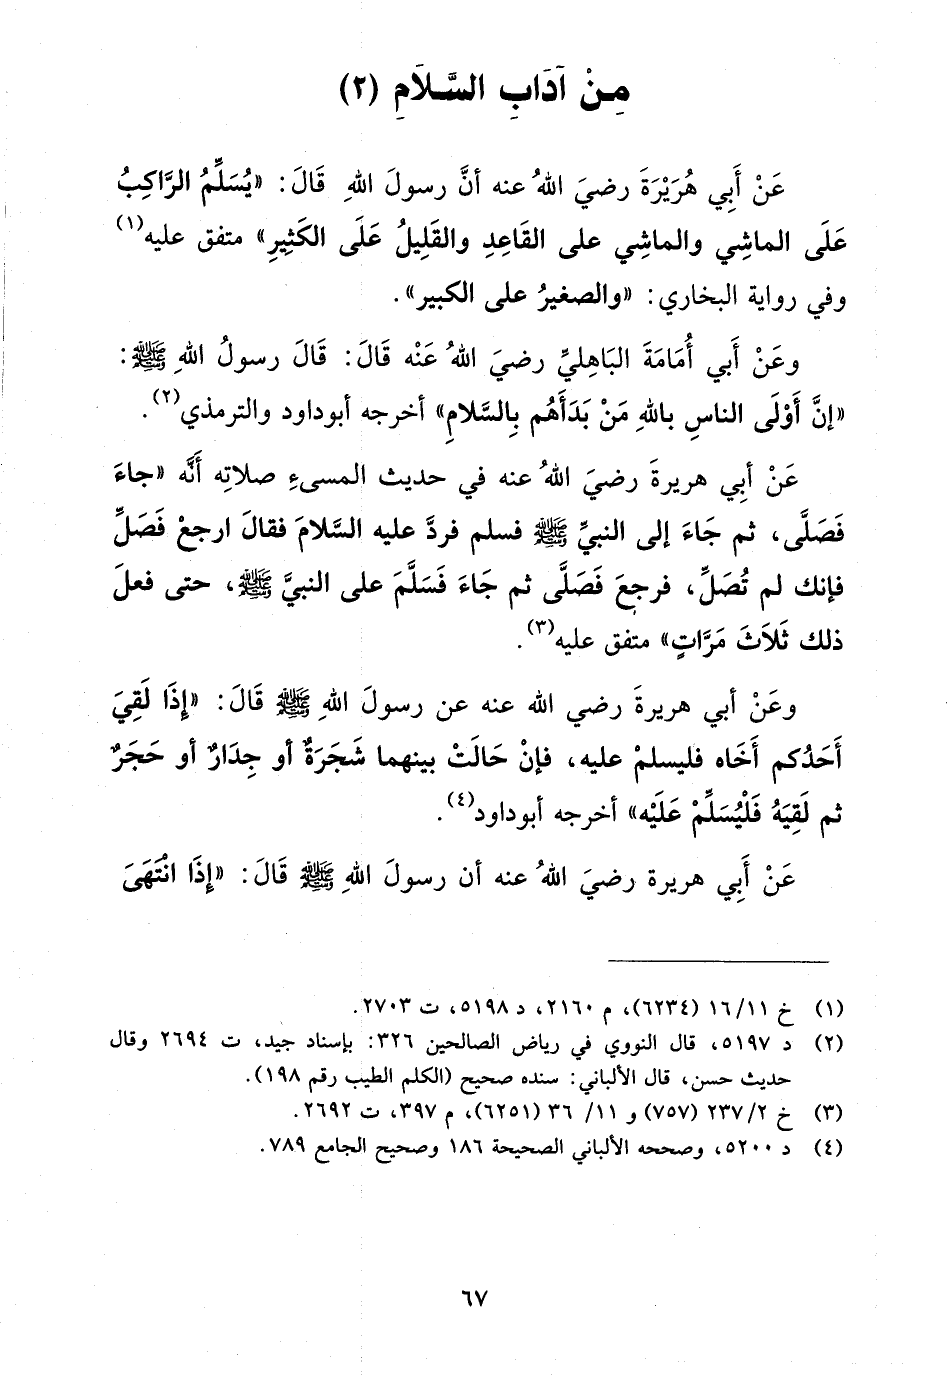 مِنْ آدَابِ السَّلَامِ (٢)
عَنْ أَبِي هُرَيْرَةَ رضيَ اللهُ عنه أنَّ رسولَ اللهِ قَالَ: «يُسَلِّمُ الرَّاكِبُ
عَلَى الماشِي والماشِي على القَاعِدِ والقَلِيلُ عَلَى الكَثِيرِ» متفق عليه(١)
وفي رواية البخاري: «والصغيرُ على الكبير».
وعَنْ أَبي أُمَامَةَ البَاهِليِّ رضيَ اللهُ عَنْه قَالَ: قَالَ رسولُ اللهِ ﷺ:
«إنَّ أَوْلَى الناسِ باللهِ مَنْ بَدَأَهُم بِالسَّلامِ» أخرجه أبوداود والترمذي(٢).
عَنْ أبِي هريرةَ رضيَ اللهُ عنه في حديث المسىءِ صلاتِه أَنَّه «جاءَ
فَصَلَّى، ثم جَاءَ إلى النبيِّ ﷺ فسلم فردَّ عليه السَّلامَ فقالَ ارجعْ فَصَلِّ
فإنك لم تُصَلِّ، فرجعَ فَصَلَّى ثم جَاءَ فَسَلَّمَ على النبيَّ ﷺ، حتى فعلَ
ذلك ثَلَاثَ مَرَّاتٍ» متفق عليه(٣).
وعَنْ أبي هريرةَ رضي الله عنه عن رسولَ اللهِ ﷺ قَالَ: «إِذَا لَقِيَ
أَحَدُكم أَخَاه فليسلمْ عليه، فإنْ حَالَتْ بينهما شَجَرَةٌ أو جِدَارٌ أو حَجَرٌ
ثم لَقِيَهُ فَلْيُسَلِّمْ عَلَيْه» أخرجه أبوداود(٤).
عَنْ أَبِي هريرة رضيَ اللهُ عنه أن رسولَ اللهِ ﷺ قَالَ: «إِذَا انْتَهَىَ
(١) خ ١٦/١١ (٦٢٣٤)، م ٢١٦٠، د ٥١٩٨، ت ٢٧٠٣.
(٢) د ٥١٩٧، قال النووي في رياض الصالحين ٣٢٦: بإسناد جيد، ت ٢٦٩٤ وقال
حديث حسن، قال الألباني: سنده صحيح (الكلم الطيب رقم ١٩٨).
(٣) خ ٢٣٧/٢ (٧٥٧) و ١١/ ٣٦ (٦٢٥١)، م ٣٩٧، ت ٢٦٩٢.
(٤) د ٥٢٠٠، وصححه الألباني الصحيحة ١٨٦ وصحيح الجامع ٧٨٩.
٦٧